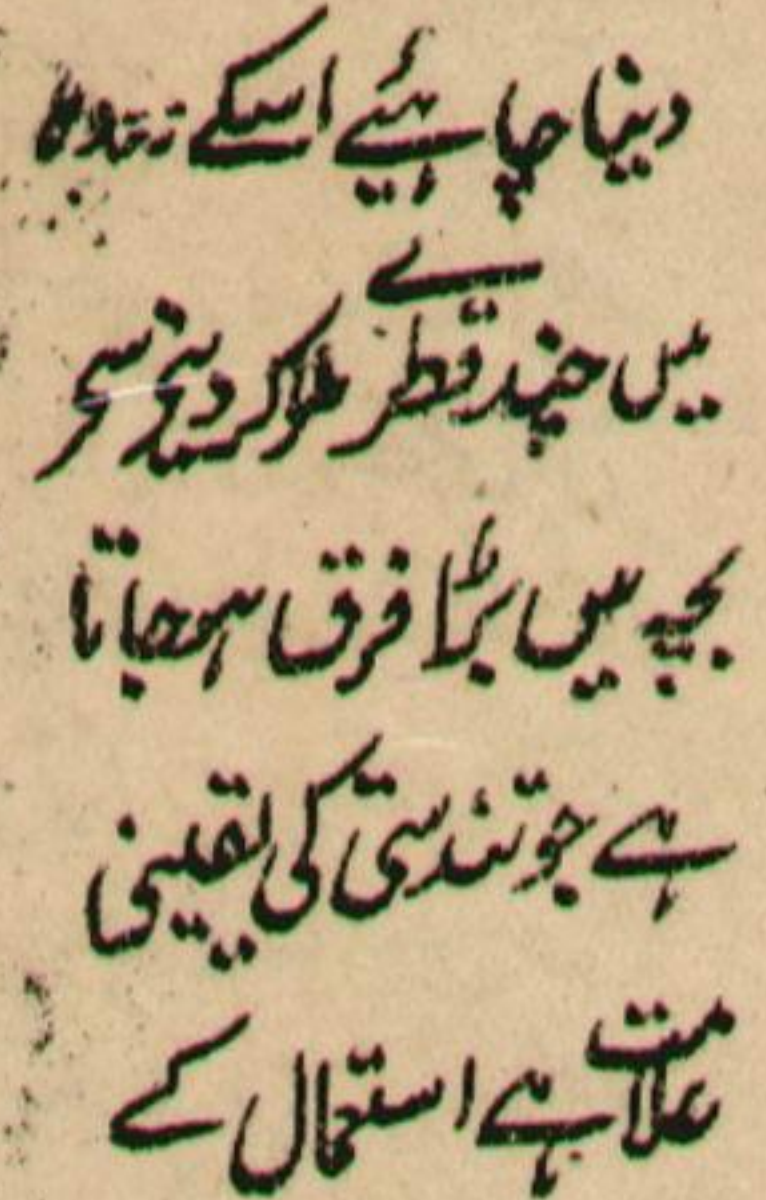 دینا چاہئیے اسکے
میں چند قطرے ملاکر دینے سے
بچہ میں بڑا فرق ہوجاتا
ہے جو تندرستی کی یقینی
علامت ہے استعمال کے